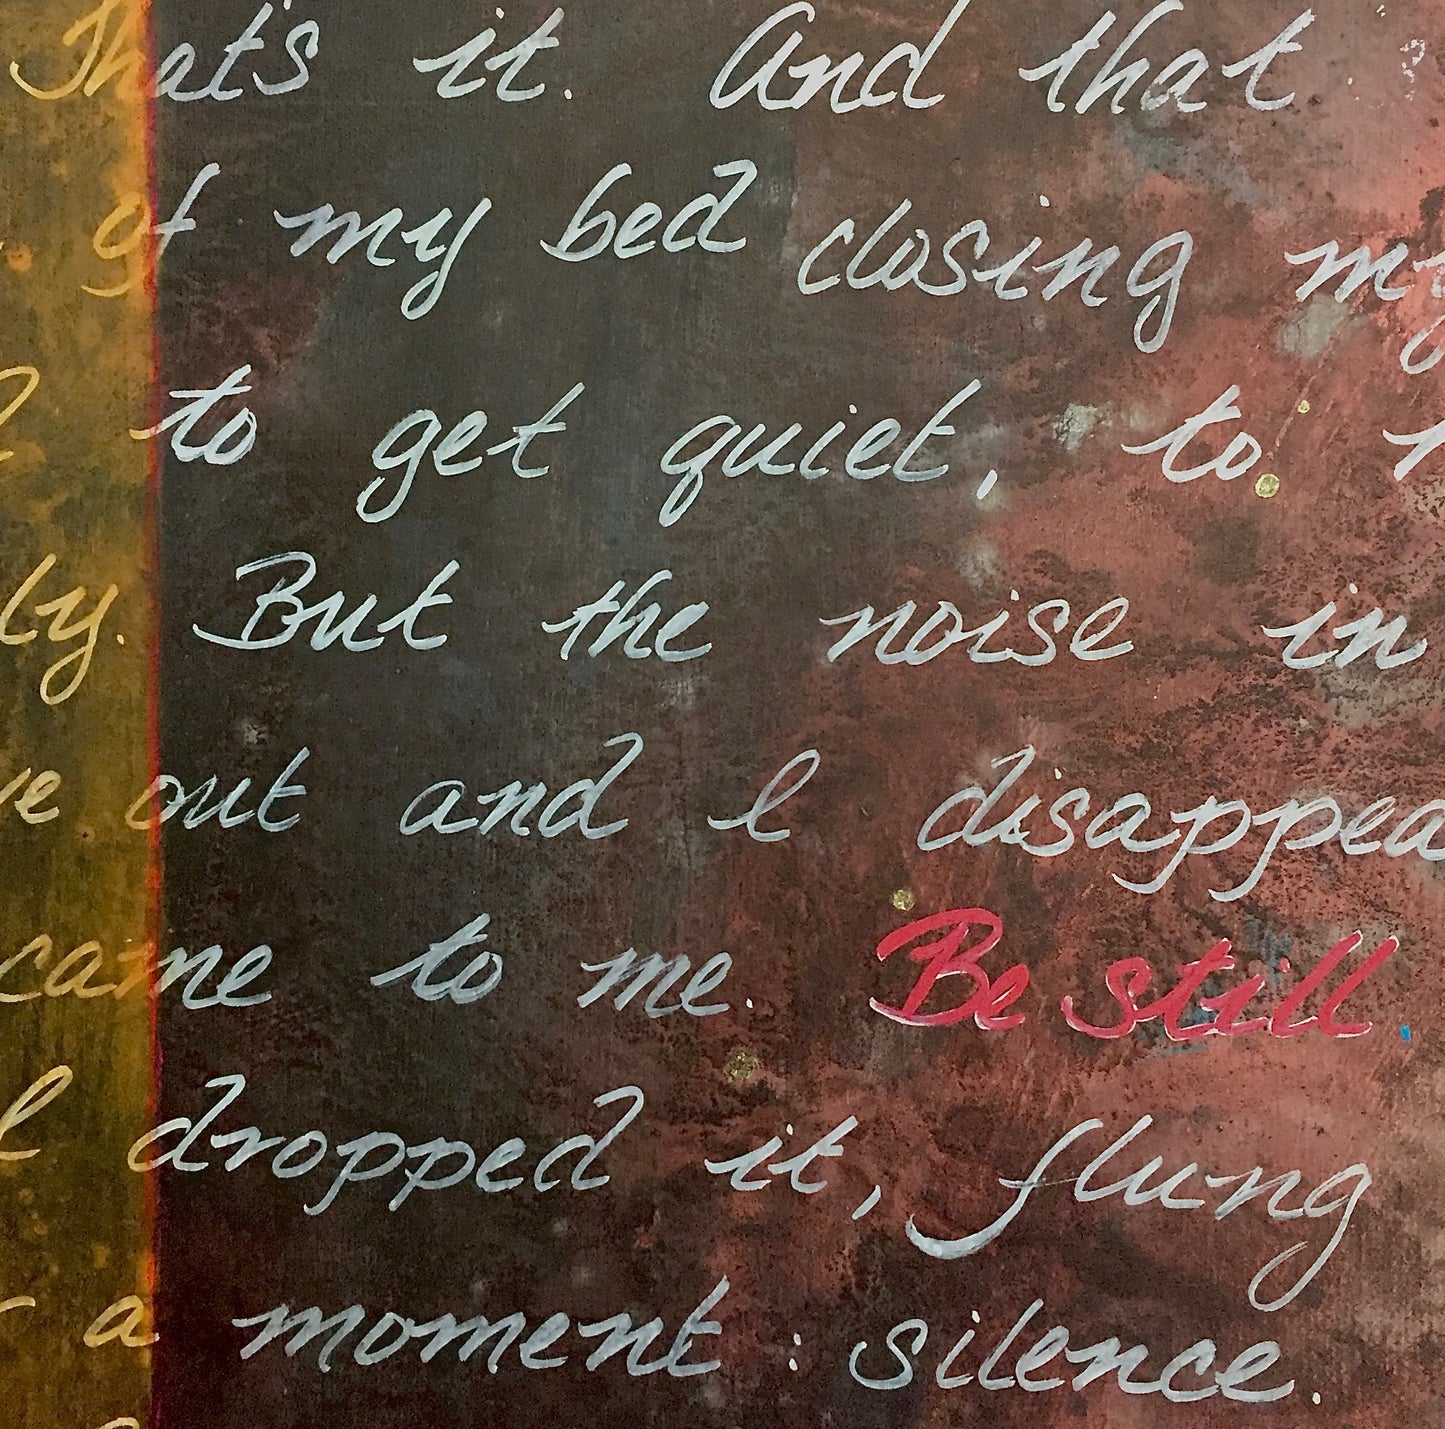 That's it. And that
of my bed closing my
to get quiet, to
ly. But the noise in
ve out and I disappea
came to me. Be still.
I dropped it, flung
a moment: silence.